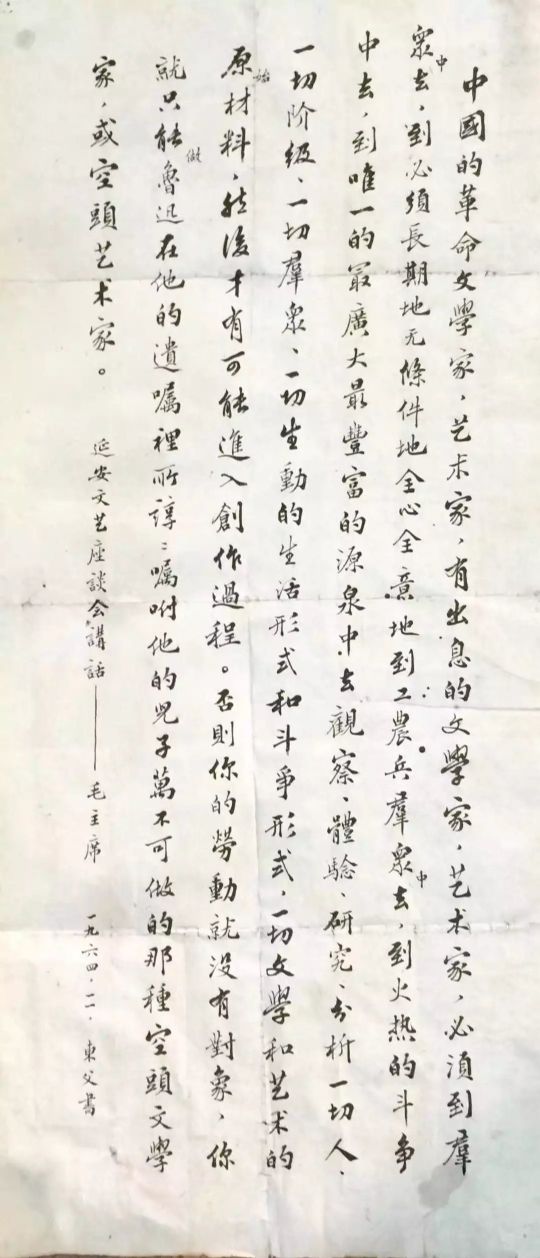 中國的革命文學家，艺术家，有出息的文學家，艺术家，必須到羣
衆中去，到必須長期地无條件地全心全意地到工農兵羣衆中去，到火热的斗争
中去，到唯一的最廣大最豐富的源泉中去觀察、體驗、研究、分析一切人、
一切阶級、一切羣衆、一切生動的生活形式和斗爭形式，一切文學和艺术的
原始材料，然後才有可能進入創作過程。否則你的勞動就没有對象，你
就只能做魯迅在他的遺嘱裡所諄〻嘱咐他的兒子萬不可做的那種空頭文學
家，或空頭艺术家。
延安文艺座談会講話——毛主席
一九六四．一一．東父書